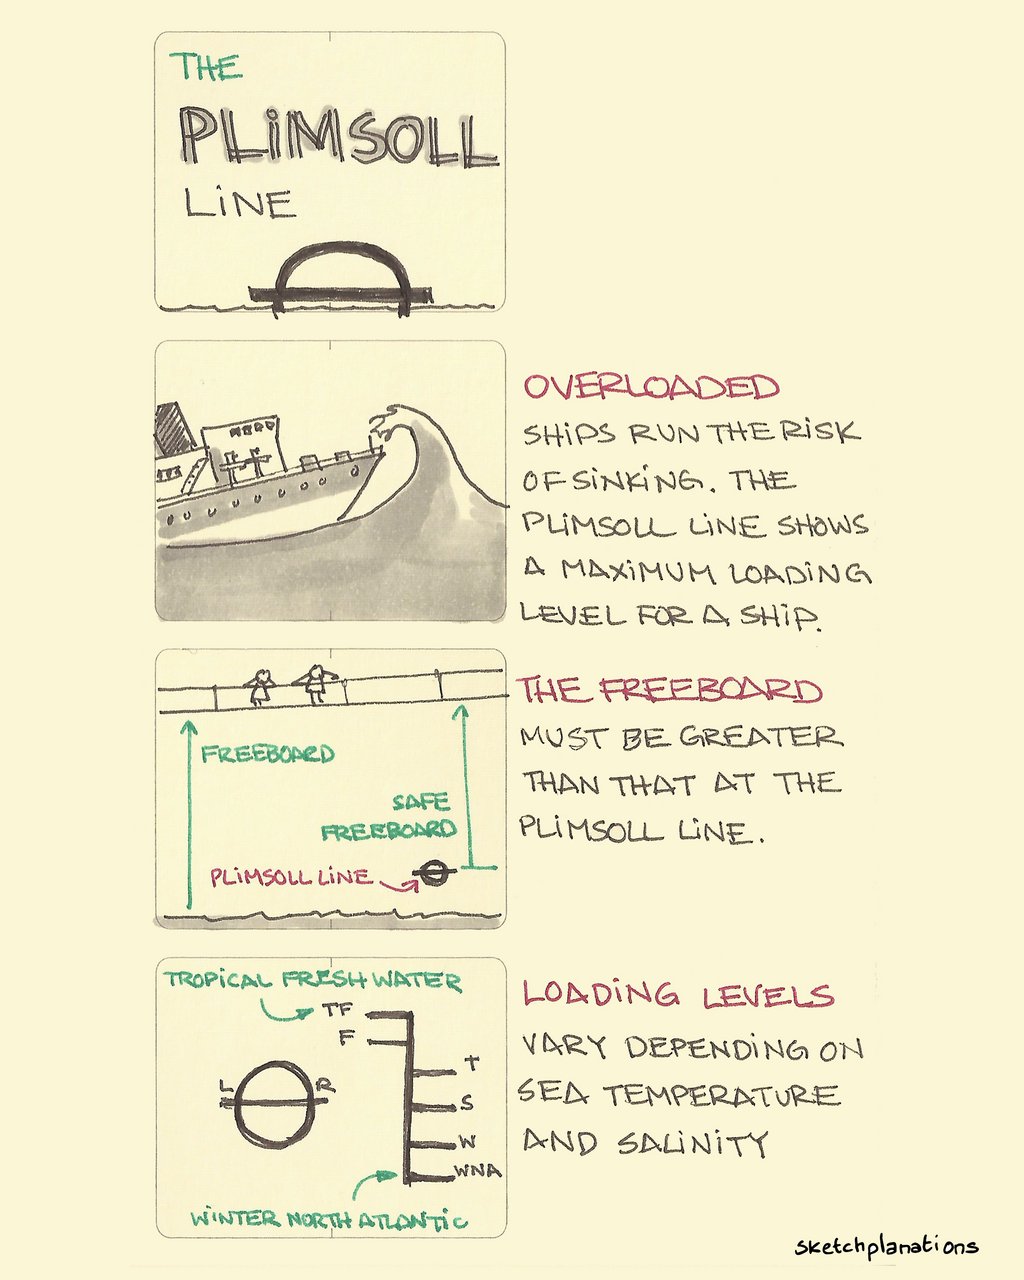 THE
PLIMSOLL
LINE
OVERLOADED
SHIPS RUN THE RISK
OF SINKING. THE
PLIMSOLL LINE SHOWS
A MAXIMUM LOADING
LEVEL FOR A SHIP.
FREEBOARD
SAFE
FREEBOARD
PLIMSOLL LINE
THE FREEBOARD
MUST BE GREATER
THAN THAT AT THE
PLIMSOLL LINE.
TROPICAL FRESH WATER
TF
F
T
L R
S
W
WNA
WINTER NORTH ATLANTIC
LOADING LEVELS
VARY DEPENDING ON
SEA TEMPERATURE
AND SALINITY
sketchplanations